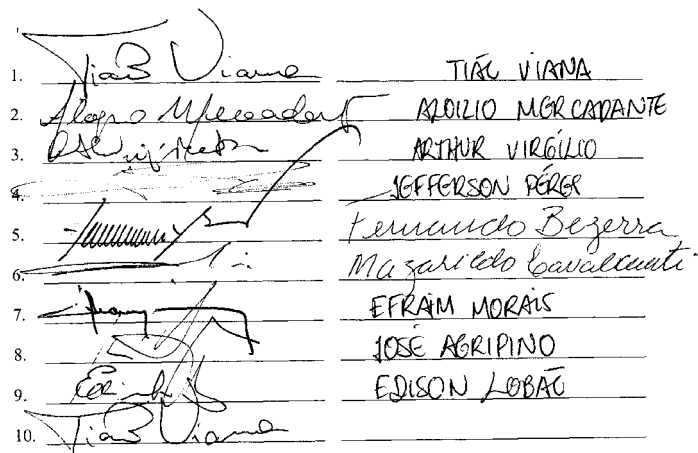 1. Tião Viana TIÃO VIANA
2. Aloizio Mercadante ALOIZIO MERCADANTE
3. ARTHUR VIRGÍLIO
4. JEFFERSON PÉRES
5. Fernando Bezerra
6. Mozarildo Cavalcanti
7. EFRAIM MORAIS
8. JOSÉ AGRIPINO
9. EDISON LOBÃO
10. Tião Viana